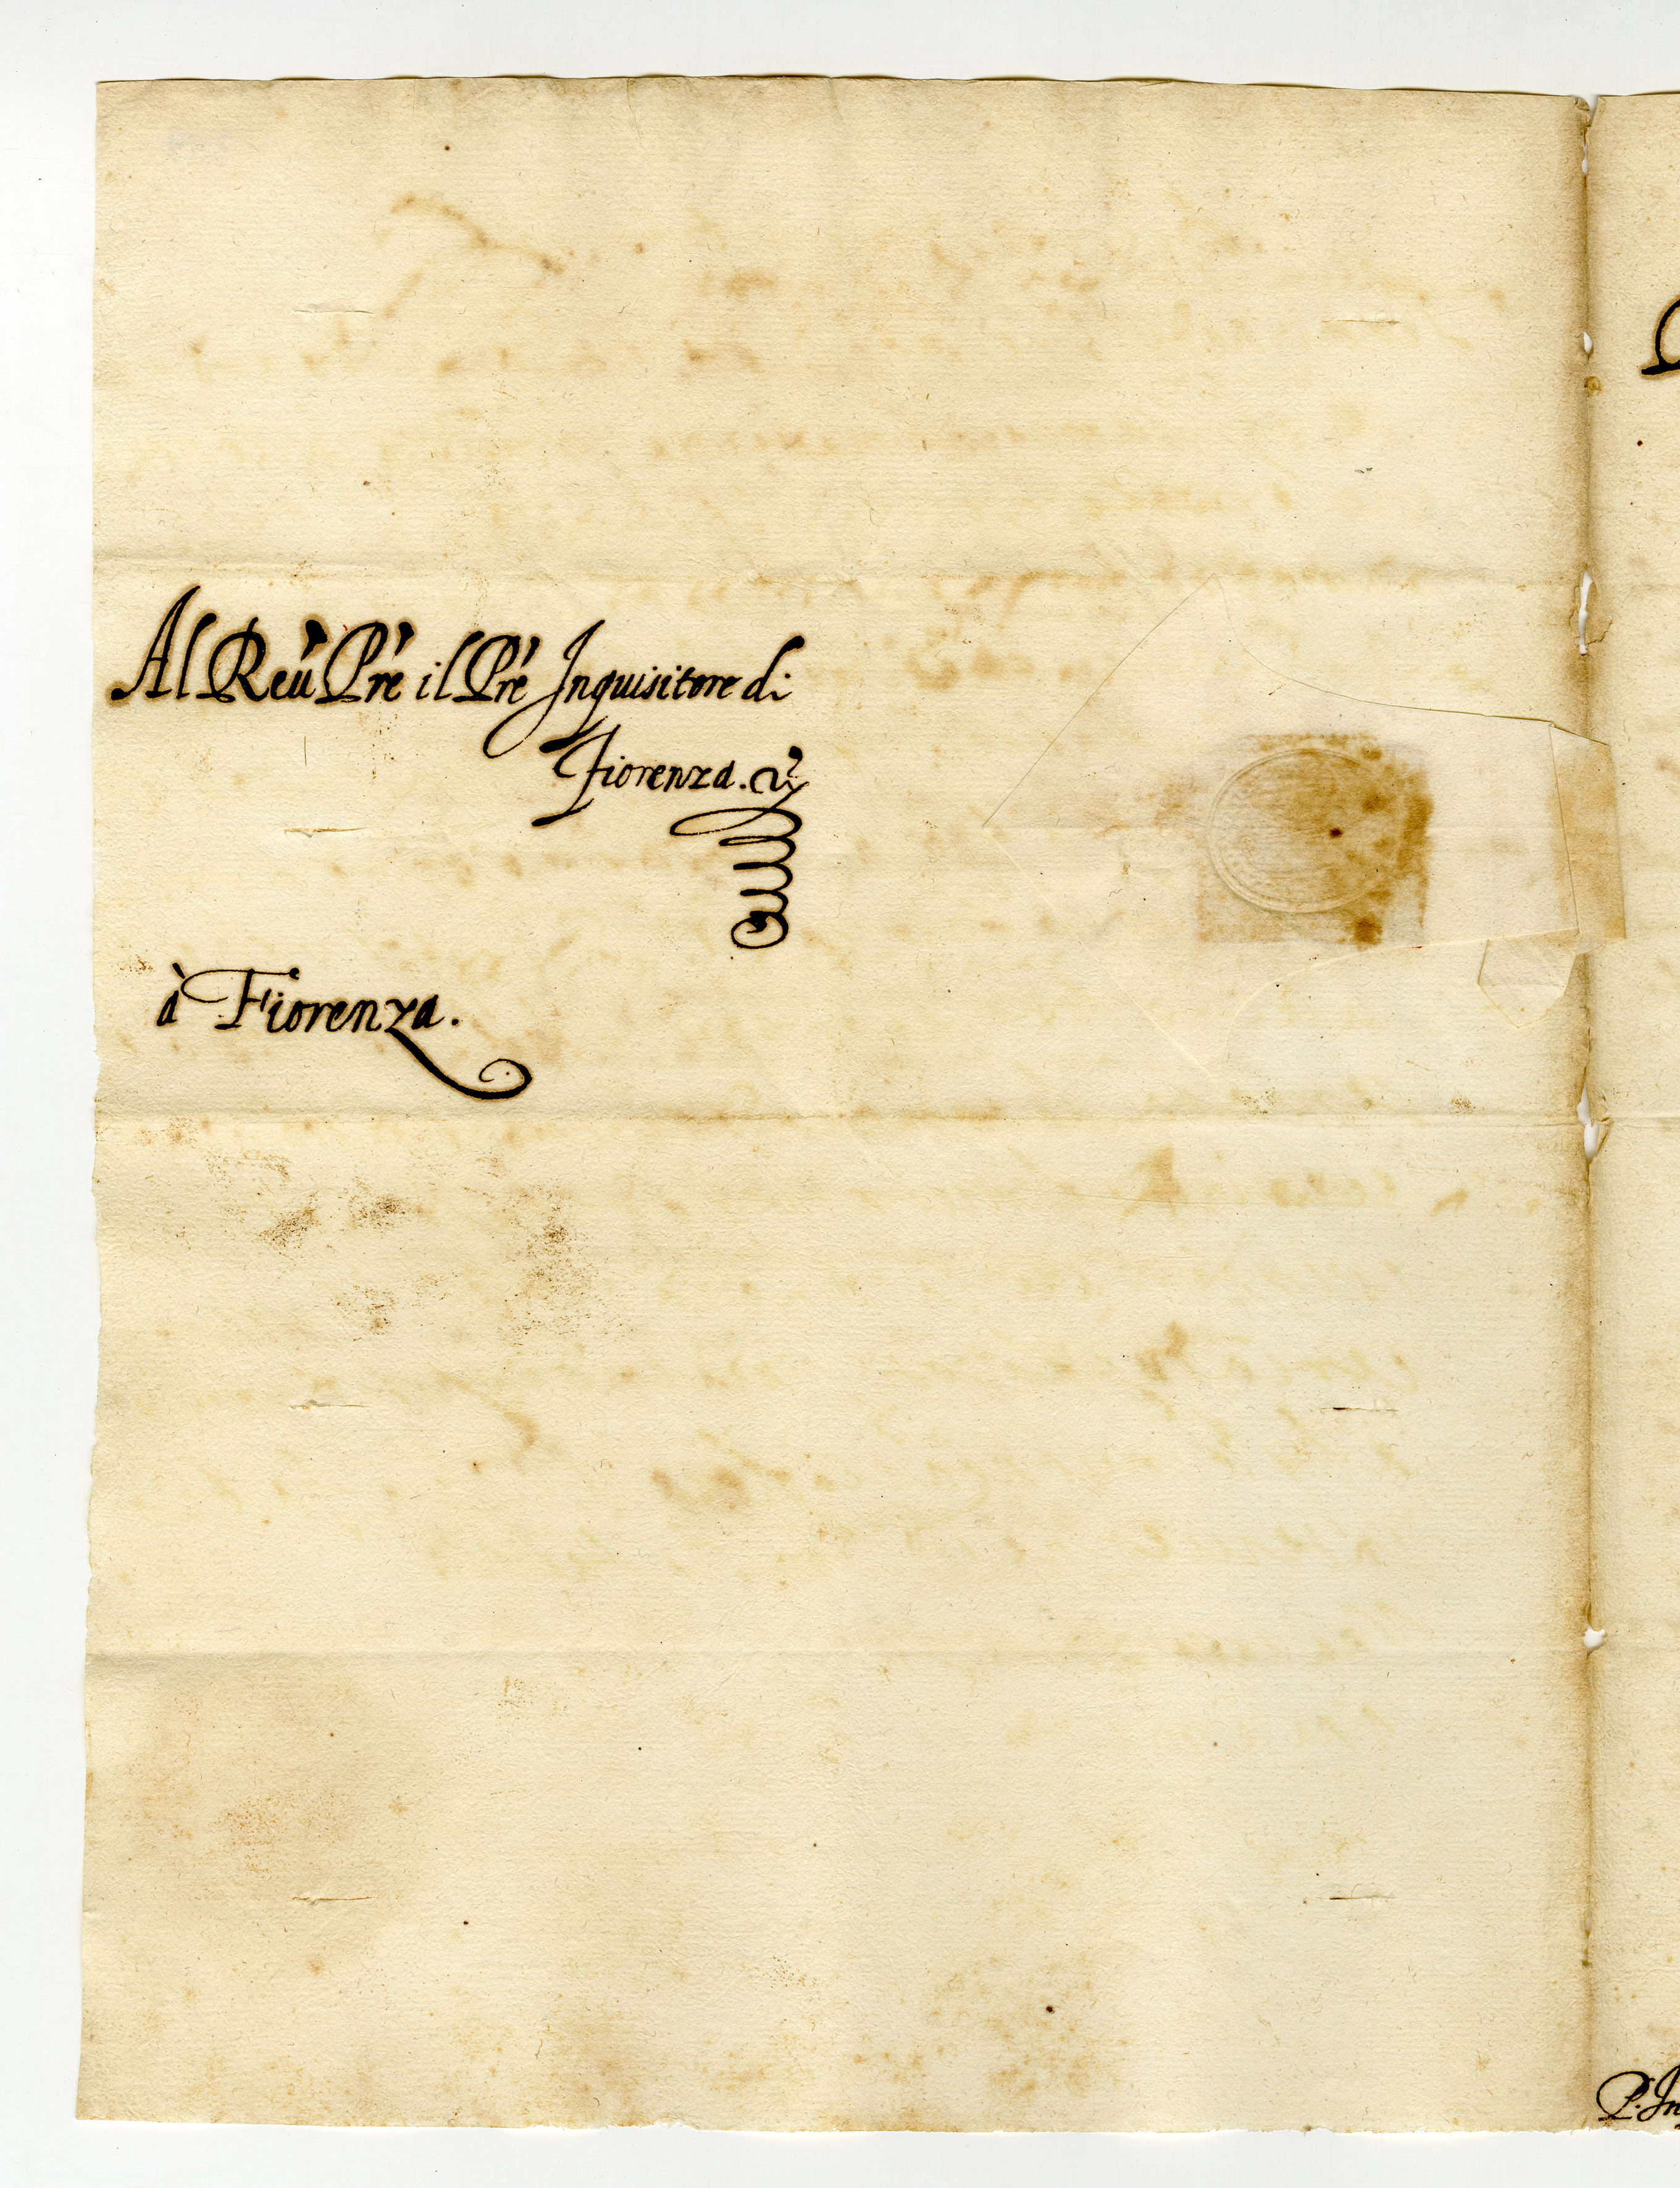 Al Reu' Pre' il Pre' Inquisitore di
Fiorenza.
à Fiorenza.
P. In